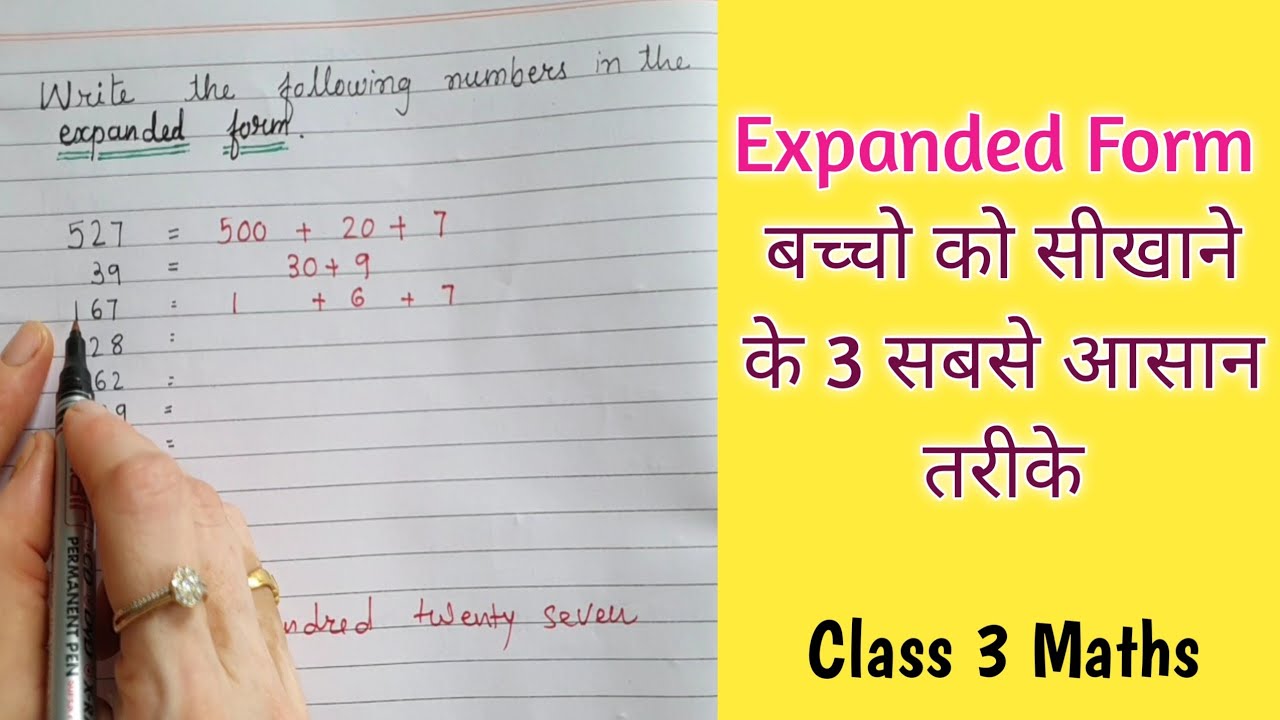 Write the following numbers in the
expanded form.
527 = 500 + 20 + 7
39 = 30 + 9
167 = 1 + 6 + 7
28 =
62 =
9 =
=
twenty seven
PERMANENT PEN
Expanded Form
बच्चो को सीखाने
के 3 सबसे आसान
तरीके
Class 3 Maths